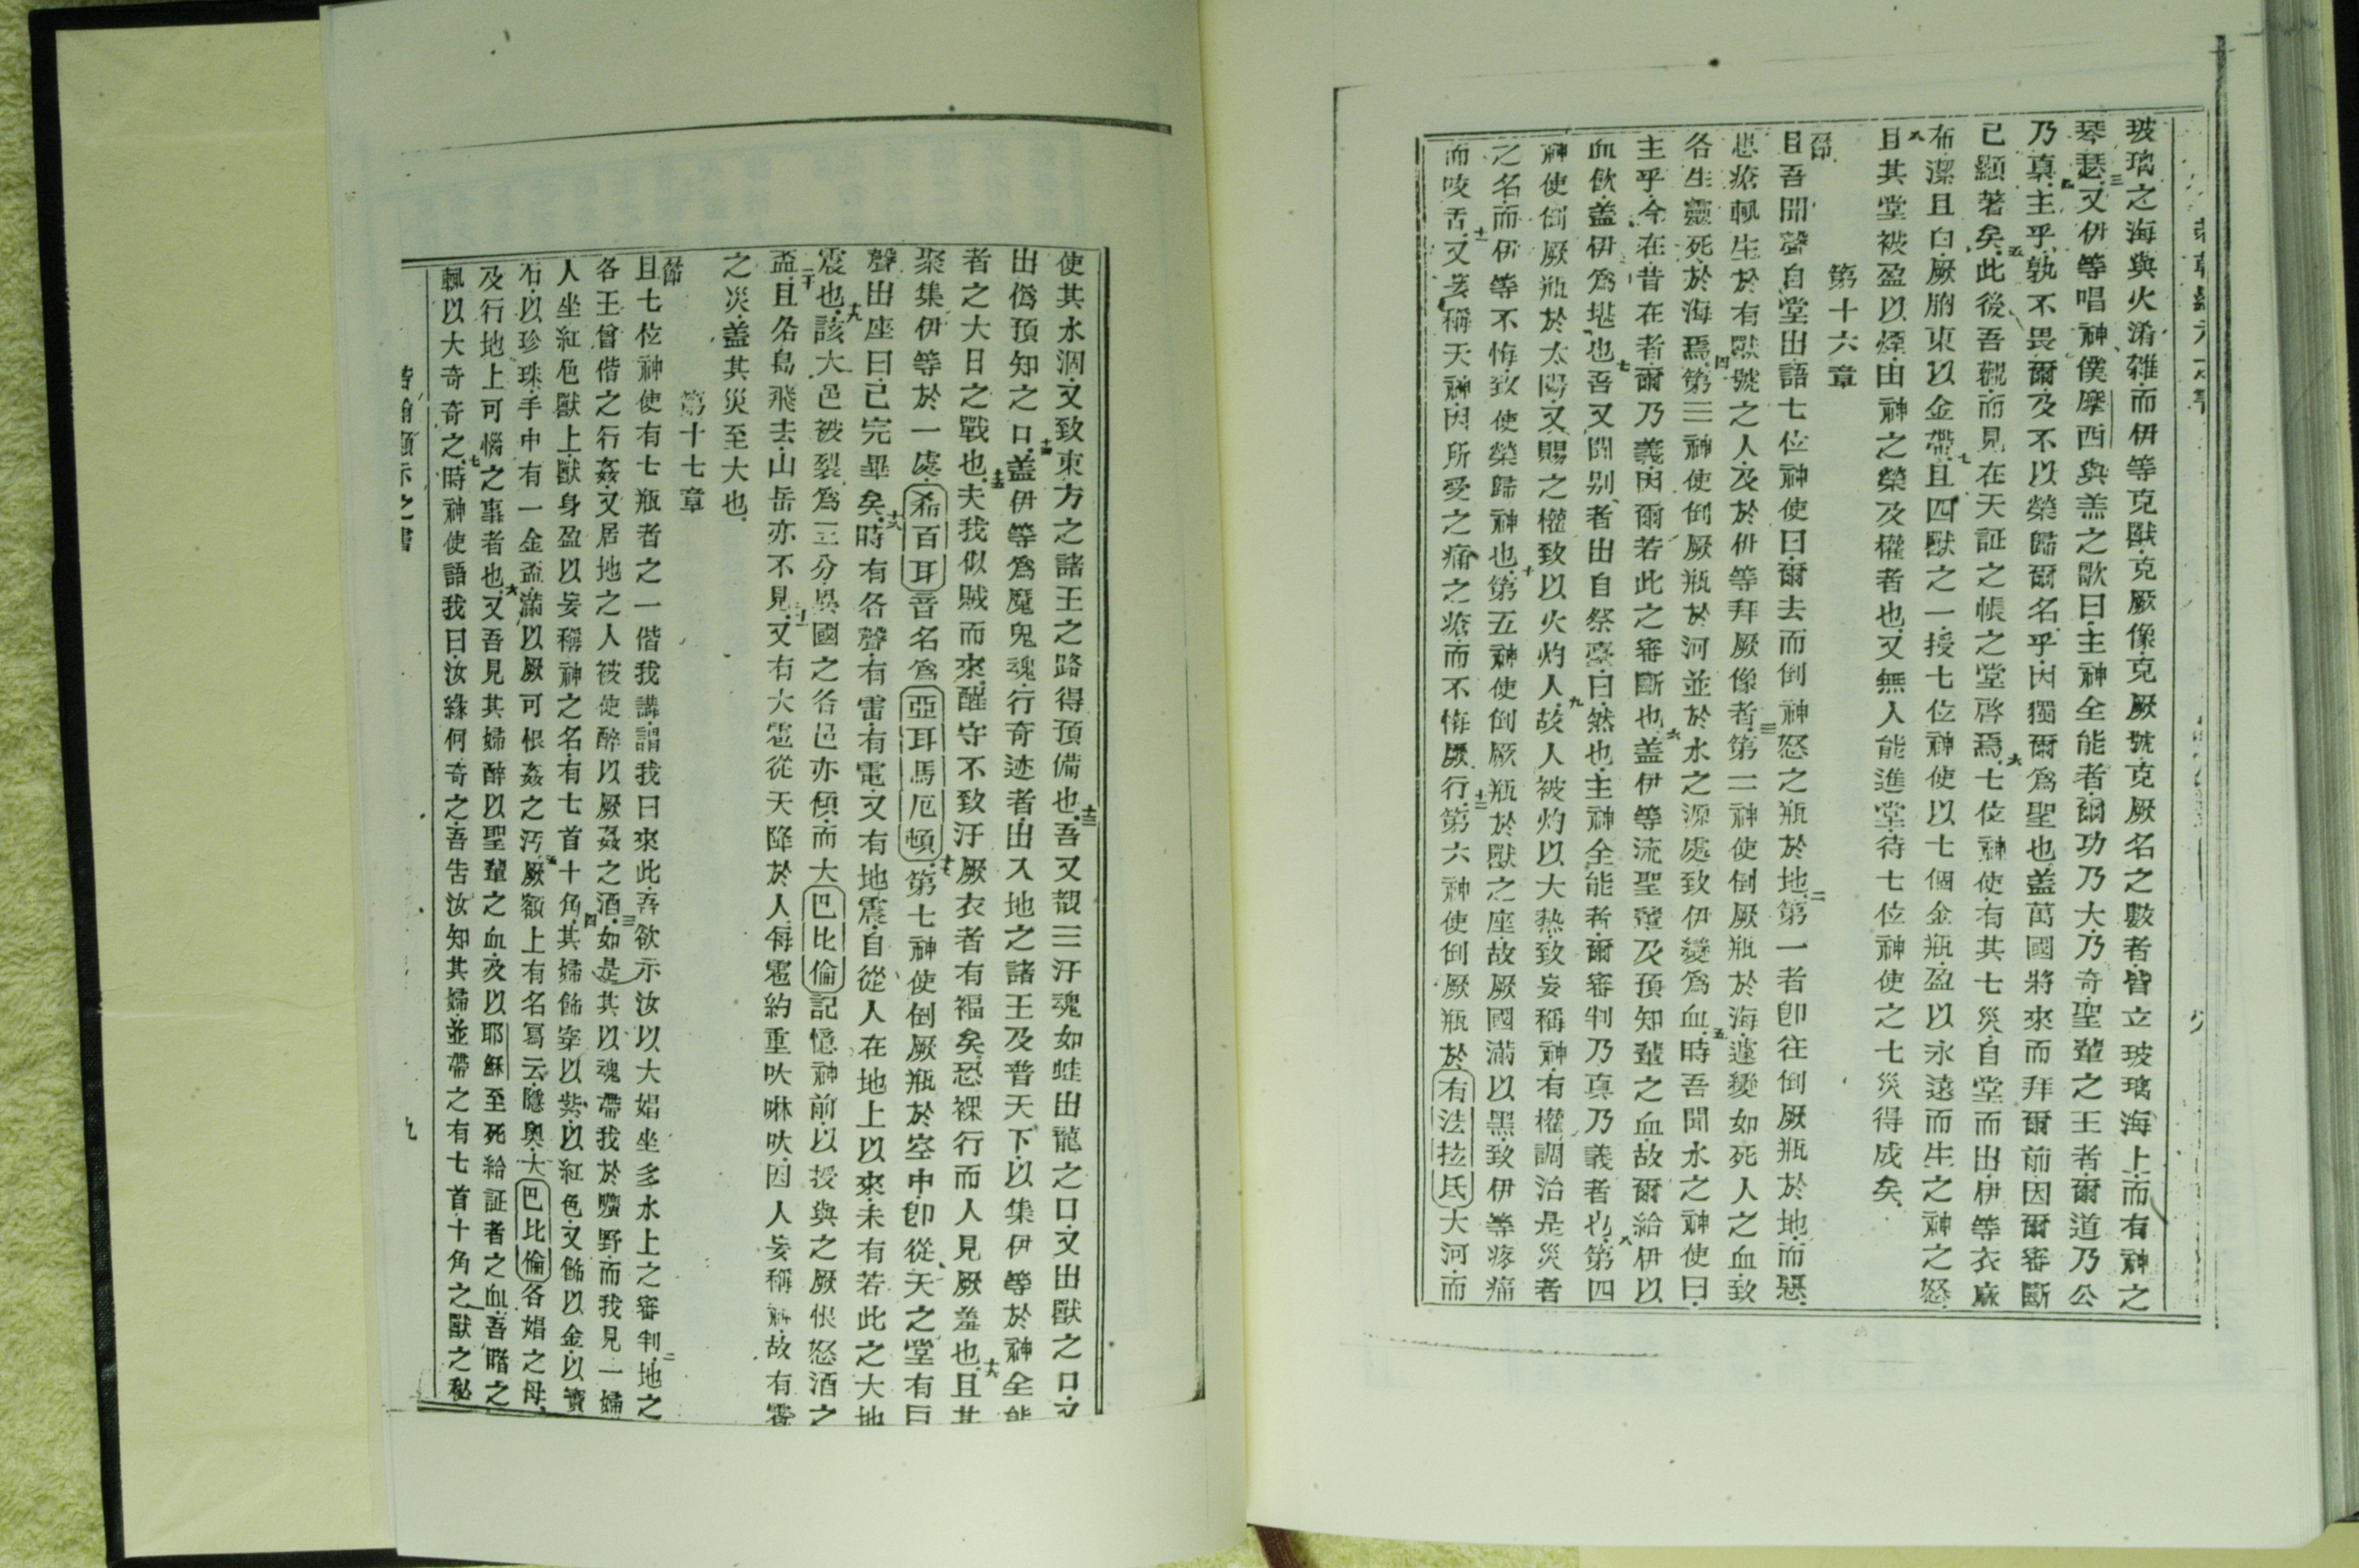 玻璃之海與火淆雜·而伊等克獸·克厥像·克厥號·克厥名之數者·皆立玻璃海上·而有神之
琴瑟·三又伊等唱神僕摩西與羔之歌曰·主神全能者·爾功乃大·乃奇·聖輩之王者·爾道乃公
乃真·四主乎·孰不畏爾·及不以榮歸爾名乎·因獨爾爲聖也·蓋萬國將來而拜爾前·因爾審斷
已顯著矣·五此後吾觀·而見在天証之帳之堂啓焉·六七位神使·有其七災·自堂而出·伊等衣麻
布·潔且白·厥胸束以金帶·七且四獸之一·授七位神使以七個金瓶·盈以永遠而生之神之怒·
八且其堂被盈以煙·由神之榮及權者也·又無人能進堂·待七位神使之七災得成矣·
第十六章
節且吾聞聲自堂出·語七位神使曰·爾去而倒神怒之瓶於地·二第一者卽往倒厥瓶於地·而惡·
患瘡輒生於有獸號之人·及於伊等拜厥像者·三第二神使倒厥瓶於海·遂變如死人之血·致
各生靈死於海焉·四第三神使倒厥瓶於河·並於水之源處·致伊變爲血·五時吾聞水之神使曰·
主乎·今在昔在者·爾乃義·因爾若此之審斷也·六蓋伊等流聖輩及預知輩之血·故爾給伊以
血飲·蓋伊爲堪也·七吾又聞別者出自祭臺·曰·然也·主神全能者·爾審判乃真乃義者也·八第四
神使倒厥瓶於太陽·又賜之權致以火灼人·九故人被灼以大熱·致妄稱神·有權調治是災者
之名·而伊等不悔·致使榮歸神也·十第五神使倒厥瓶於獸之座·故厥國滿以黑·致伊等疼痛
而咬舌·十一又妄稱天神·因所受之痛之瘡·而不悔厥行·十二第六神使倒厥瓶於有法拉氐大河·而
使其水涸·又致東方之諸王之路得預備也·十三吾又覩三汙魂如蛙出龍之口·又出獸之口·又
出僞預知之口·十四蓋伊等爲魔鬼魂·行奇迹者·出入地之諸王及普天下·以集伊等於神全能
者之大日之戰也·十五夫我似賊而來·醒守不致汙厥衣者有福矣·恐裸行而人見厥羞也·十六且其
聚集伊等於一處·希百耳音名爲亞耳馬厄頓·十七第七神使倒厥瓶於空中·卽從天之堂有巨
聲出座曰·已完畢矣·十八時有各聲·有雷·有電·又有地震·自從人在地上以來·未有若此之大地
震也·十九該大邑被裂爲三分·異國之各邑亦傾·而大巴比倫記憶神前·以授與之厥恨怒酒之
盃·二十且各島飛去·山岳亦不見·二十一又有大雹從天降於人·每雹約重呔啉呔·因人妄稱神·故有雹
之災·蓋其災至大也·
第十七章
節且七位神使有七瓶者之一偕我講·謂我曰·來此·吾欲示汝以大娼坐多水上之審判·二地之
各王曾偕之行姦·又居地之人被使醉以厥姦之酒·三如是其以魂帶我於曠野·而我見一婦
人坐紅色獸上·獸身盈以妄稱神之名·有七首十角·四其婦飾穿以紫·以紅色·又飾以金·以寶
石·以珍珠·手中有一金盃·滿以厥可恨姦之汚·五厥額上有名寫云·隱奧·大巴比倫各娼之母·
及行地上可惱之事者也·六又吾見其婦醉以聖輩之血·及以耶穌至死給証者之血·吾瞻之
輒以大奇奇之·七時神使語我曰·汝緣何奇之·吾告汝知其婦·並帶之有七首十角之獸之秘
示之書 九